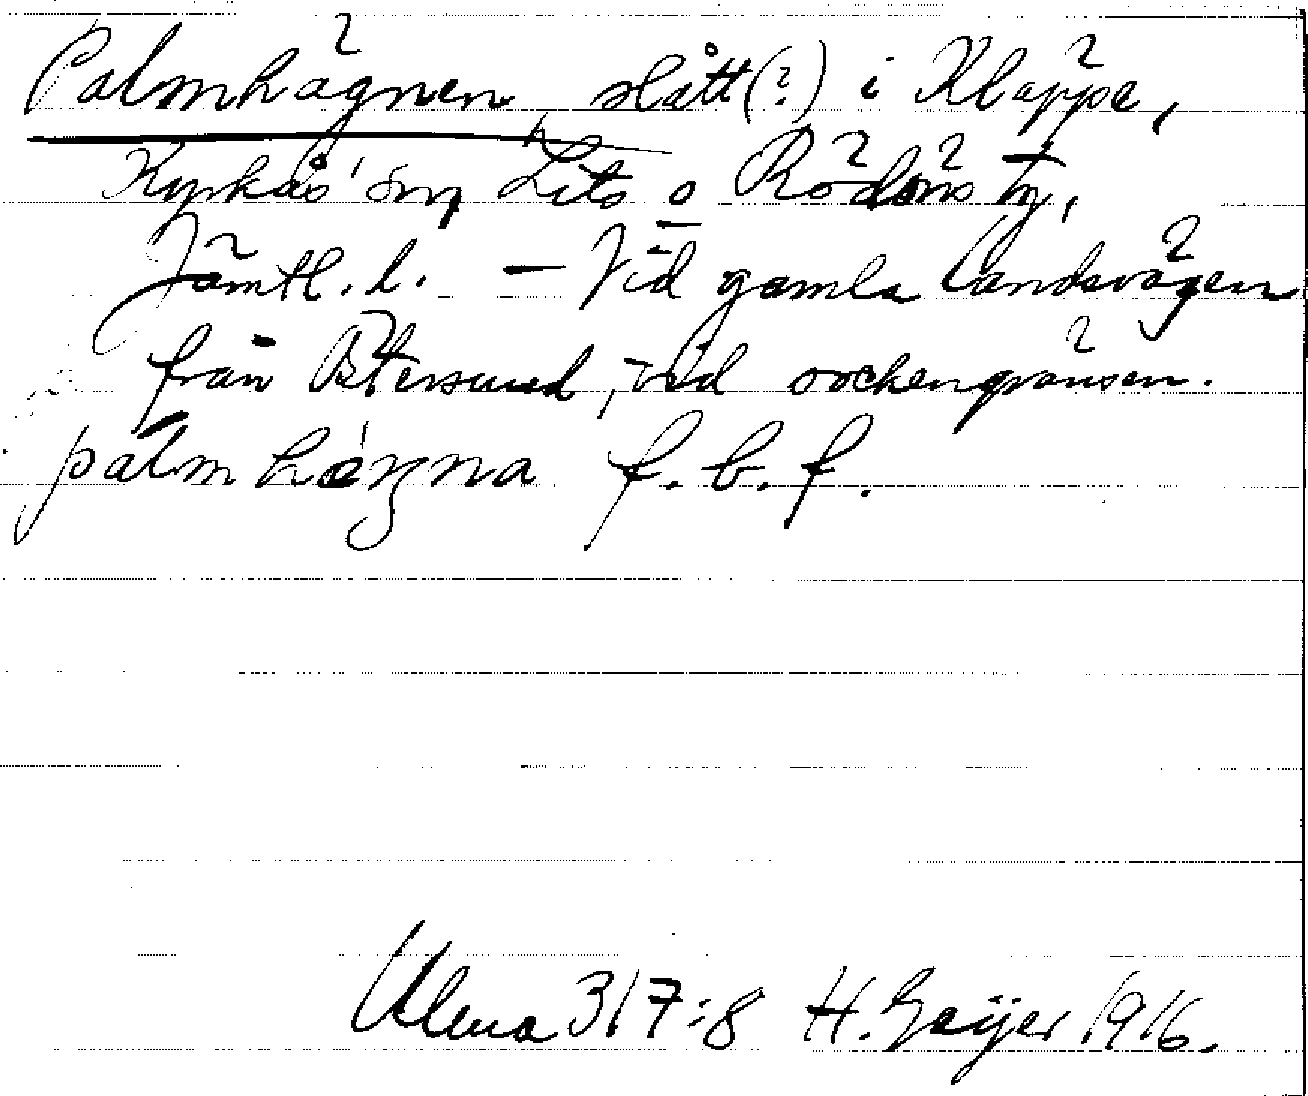 Palmhägnen slått(?) i Kläppe,
Kyrkås' sn, Lits o Rödöns tg,
Jämtl. l. - Vid gamla landsvägen
från Östersund, vid sockengränsen.
palmhęgna f. b. f.
Ulma 317:8 H. Geijer 1916.